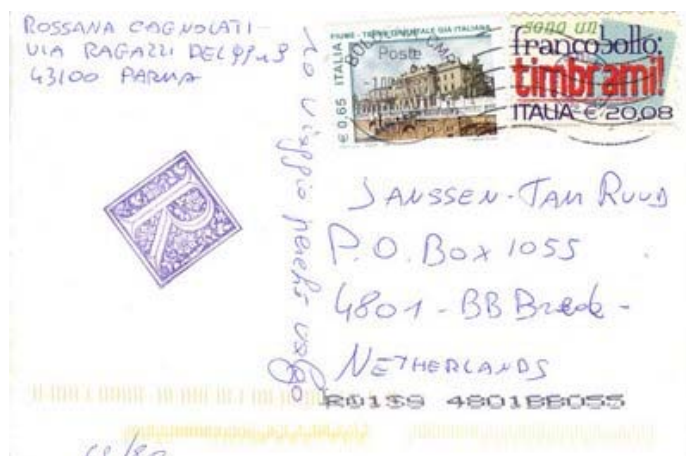 ROSSANA CAGNOLATI-
VIA RAGAZZI DEL
43100 PARMA
io viaggio perché valgo
FIUME - TERRA ORIENTALE GIÀ ITALIANA
Poste
ITALIA
€ 0,65
sono un
francobollo:
timbrami!
ITALIA € 20,08
JANSSEN-TAM RUUD
P.O. BOX 1055
4801-BB Breda-
NETHERLANDS
R0138 4801BB055